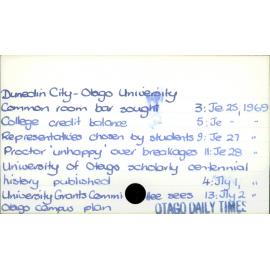 Dunedin City - Otago University
Common room bar sought 3: Je 25, 1969
College credit balance 5: Je - "
Representatives chosen by students 9: Je 27 "
Proctor 'unhappy' over breakages 11: Je 28 "
University of Otago scholarly centennial
history published 4: Jly 1, "
University Grants Commi ee sees 13: Jly 2 "
Otago campus plan OTAGO DAILY TIMES